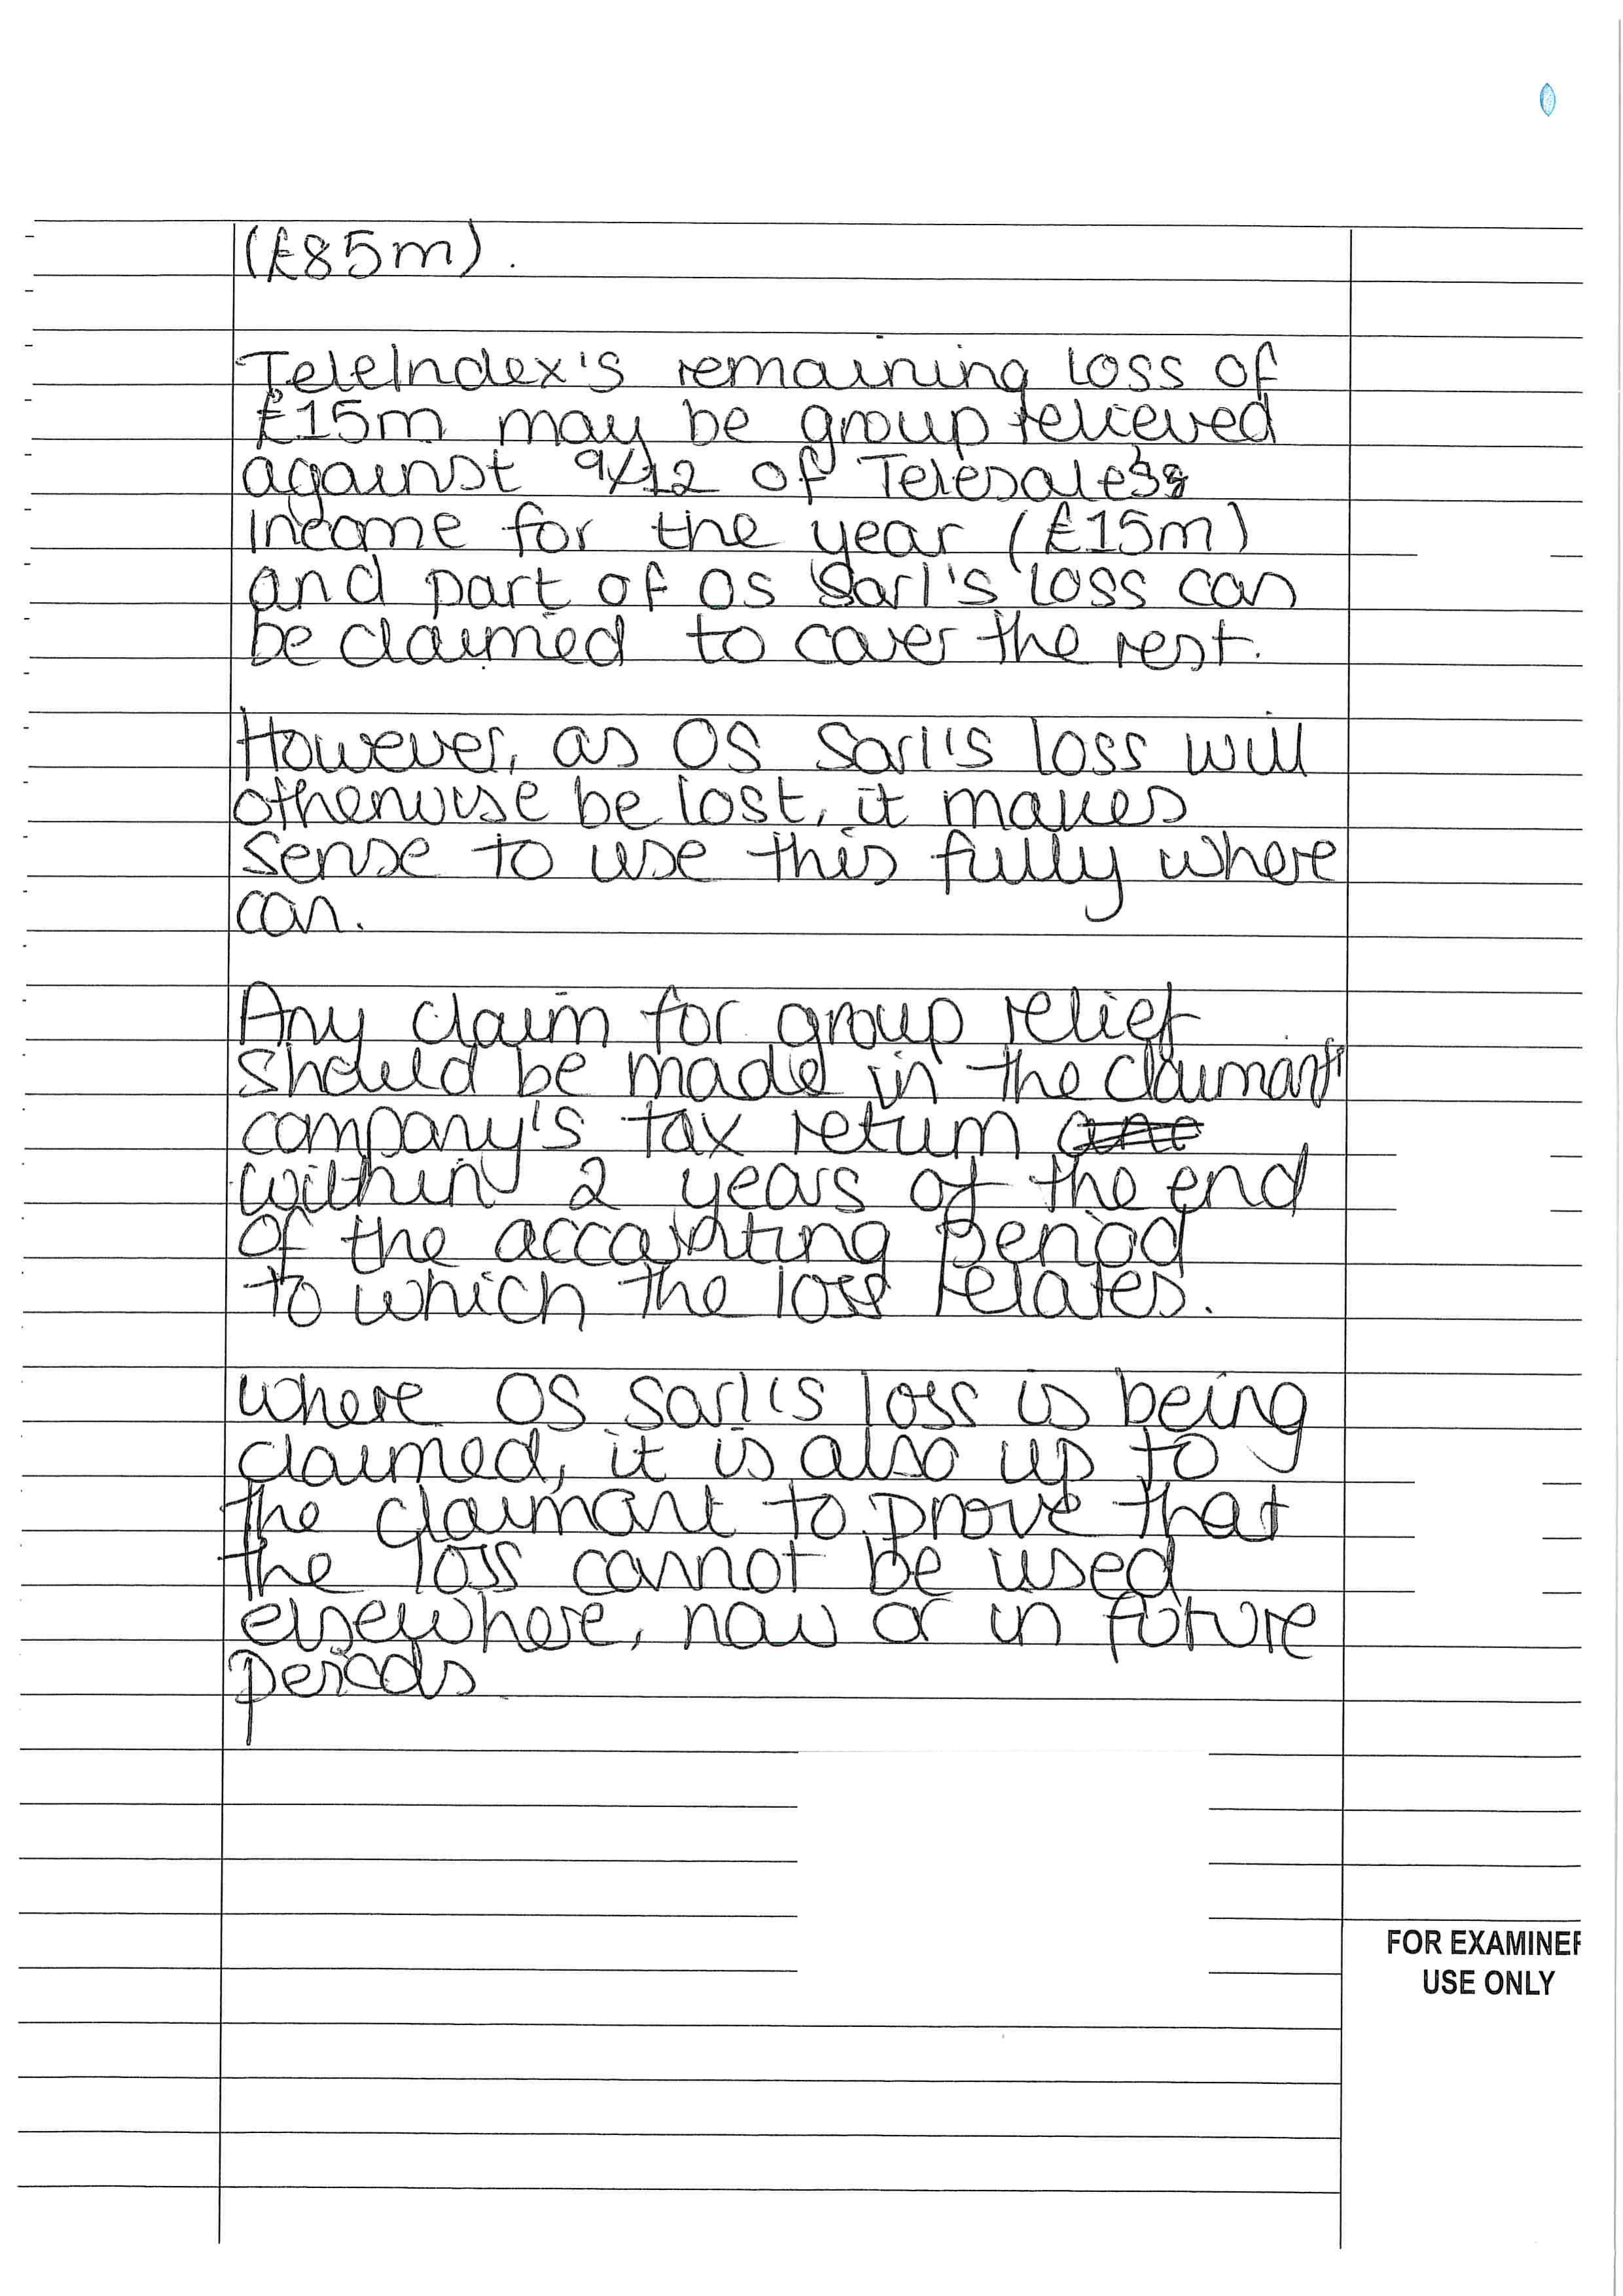 (£85m).
TeleIndex's remaining loss of
£15m may be group relieved
against 9/12 of Telesales's
income for the year (£15m)
and part of OS Sarl's loss can
be claimed to cover the rest.
However, as OS Sarl's loss will
otherwise be lost, it makes
sense to use this fully where
can.
Any claim for group relief
should be made in the claimant
company's tax return
within 2 years of the end
of the accounting period
to which the loss relates.
Where OS Sarl's loss is being
claimed, it is also up to
the claimant to prove that
the loss cannot be used
elsewhere, now or in future
periods
FOR EXAMINER
USE ONLY